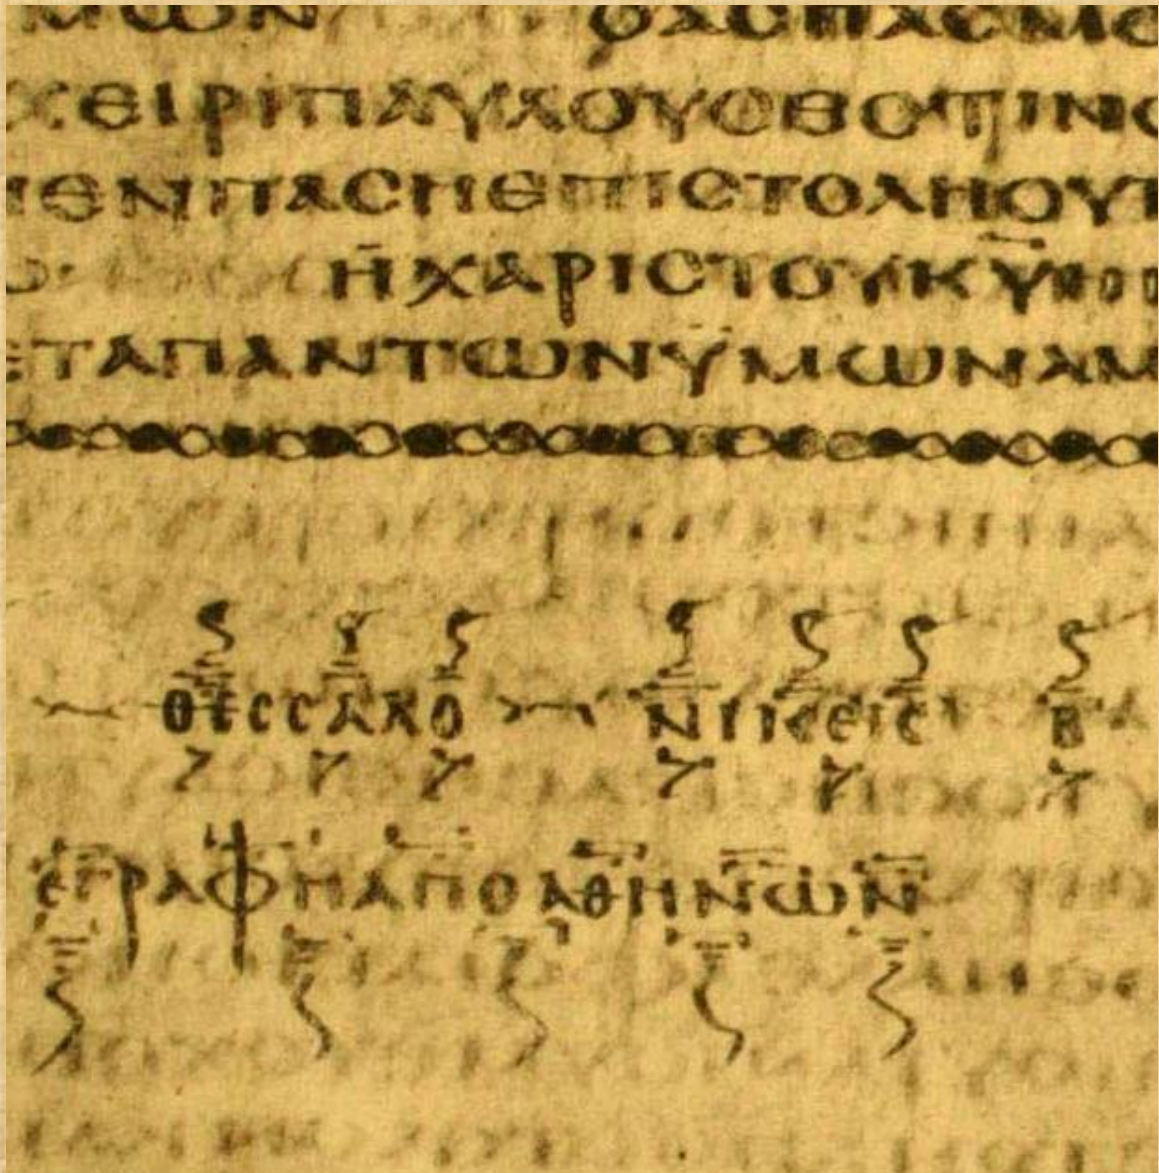 ΜΩΝ ΟΑϹΠΑϹΜΟ
ΧΕΙΡΙΠΑΥΛΟΥΟΕϹΤΙΝϹ
ΕΝΠΑϹΗΕΠΙϹΤΟΛΗΟΥΤ
Ω· ΗΧΑΡΙϹΤΟΥΚ̅Υ̅ΗΜ
ΕΤΑΠΑΝΤΩΝΫΜΩΝΑΜ
ΘΕϹϹΑΛΟ ΝΙΚΕΙϹ Β
ΕΓΡΑΦΗΑΠΟΑΘΗΝΩΝ